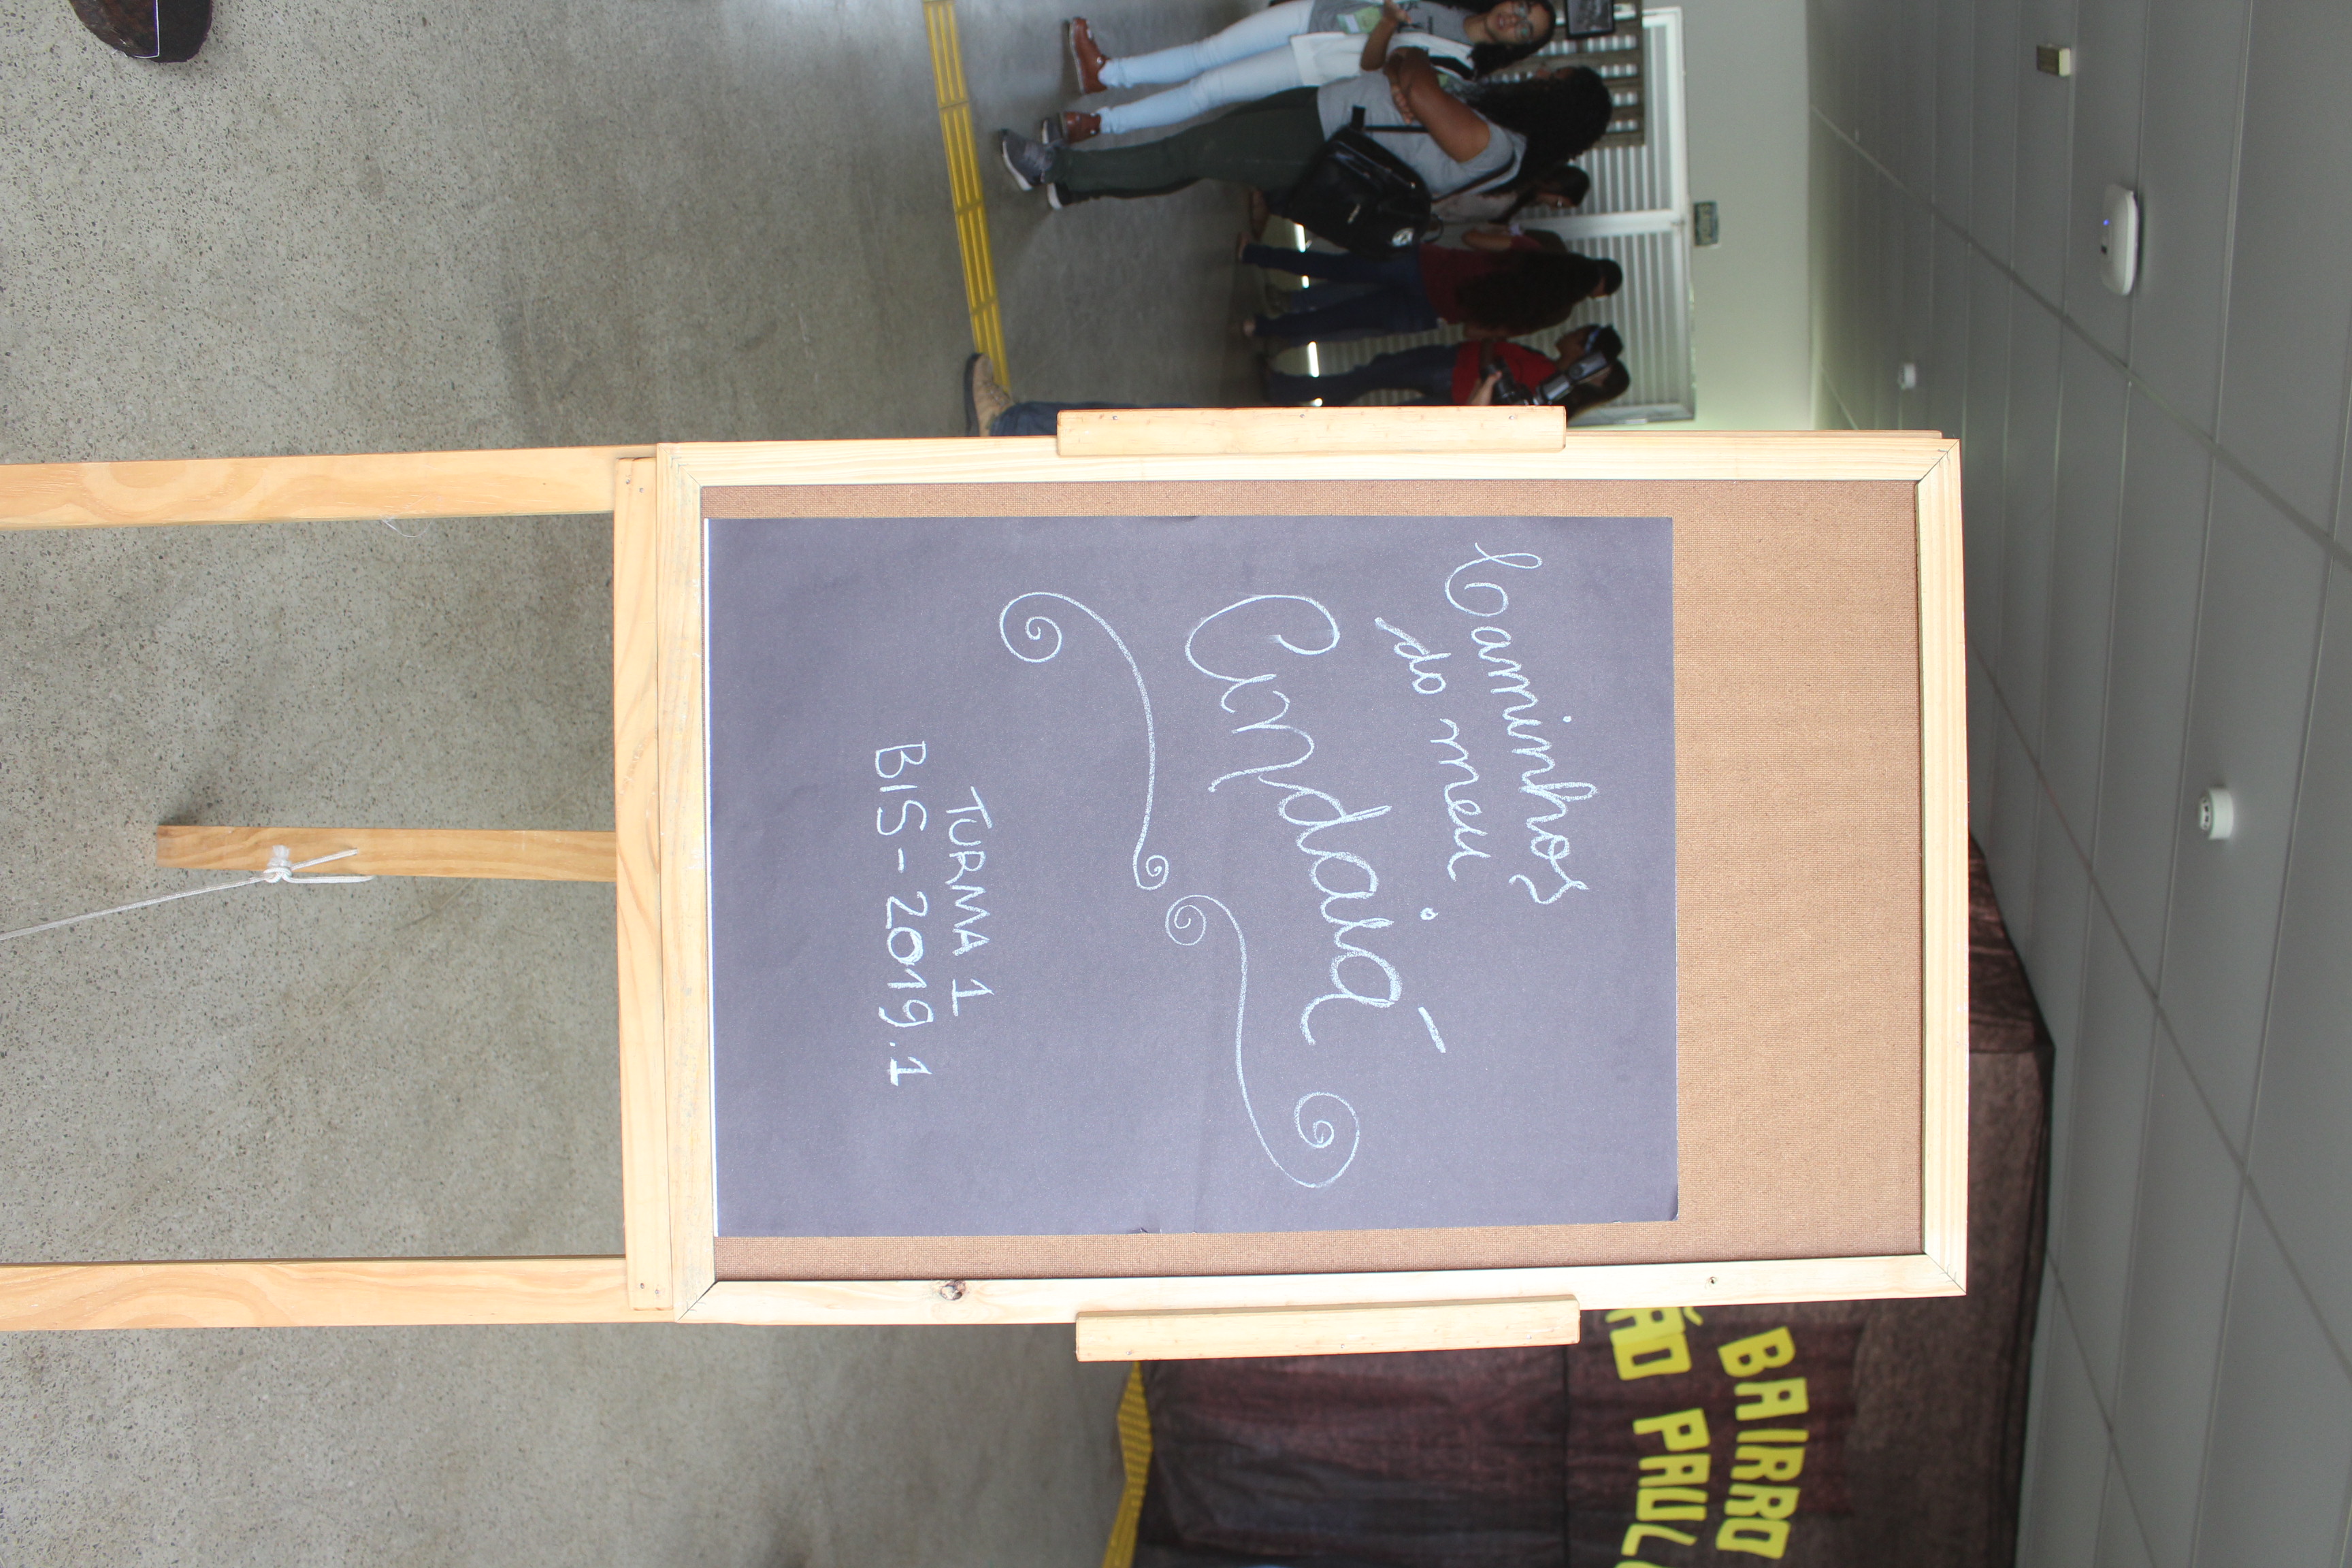 Caminhos
do meu
Cundaiá
TURMA 1
BIS - 2019.1
BAIRRO
ÃO PAULO